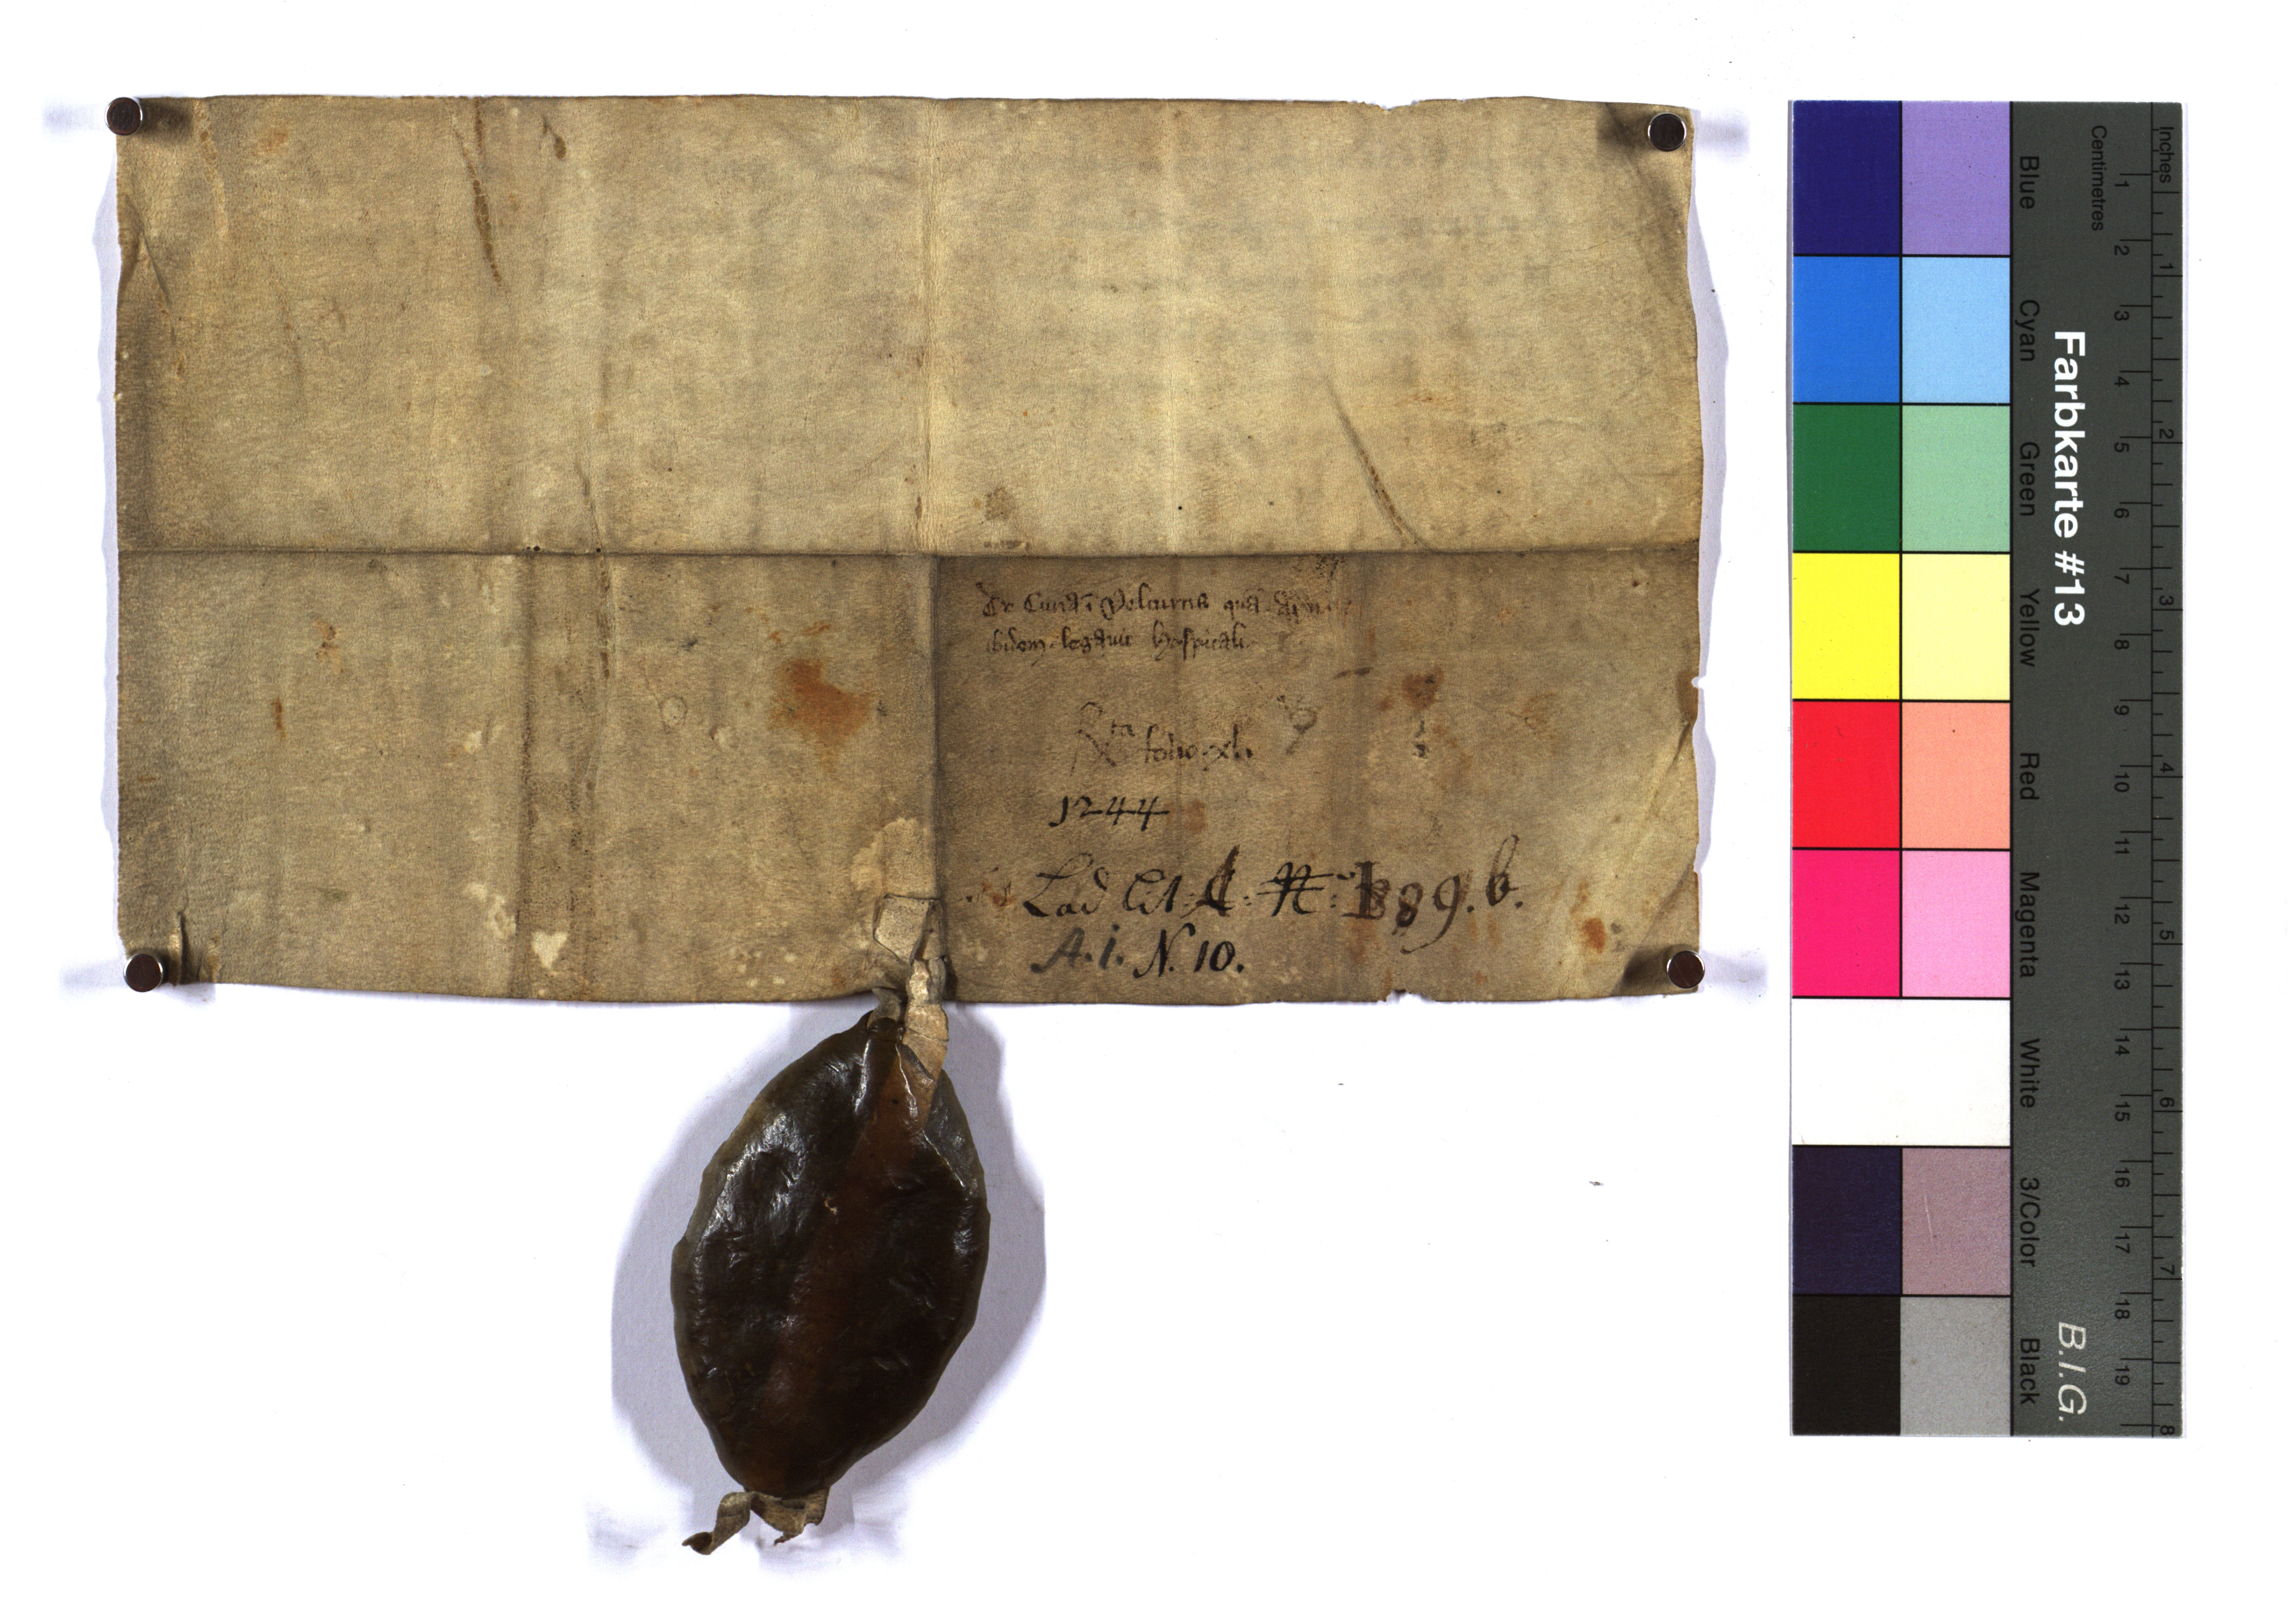 De Curia ī Velturns quā
ibidem legavit hospitali
Rta folio xli
1244
Lad Lit: A: N: 889. b.
A. i. N. 10.
Inches
Centimetres
1 2 3 4 5 6 7 8 9 10 11 12 13 14 15 16 17 18 19
1 2 3 4 5 6 7 8
Farbkarte #13
B.I.G.
Blue
Cyan
Green
Yellow
Red
Magenta
White
3/Color
Black